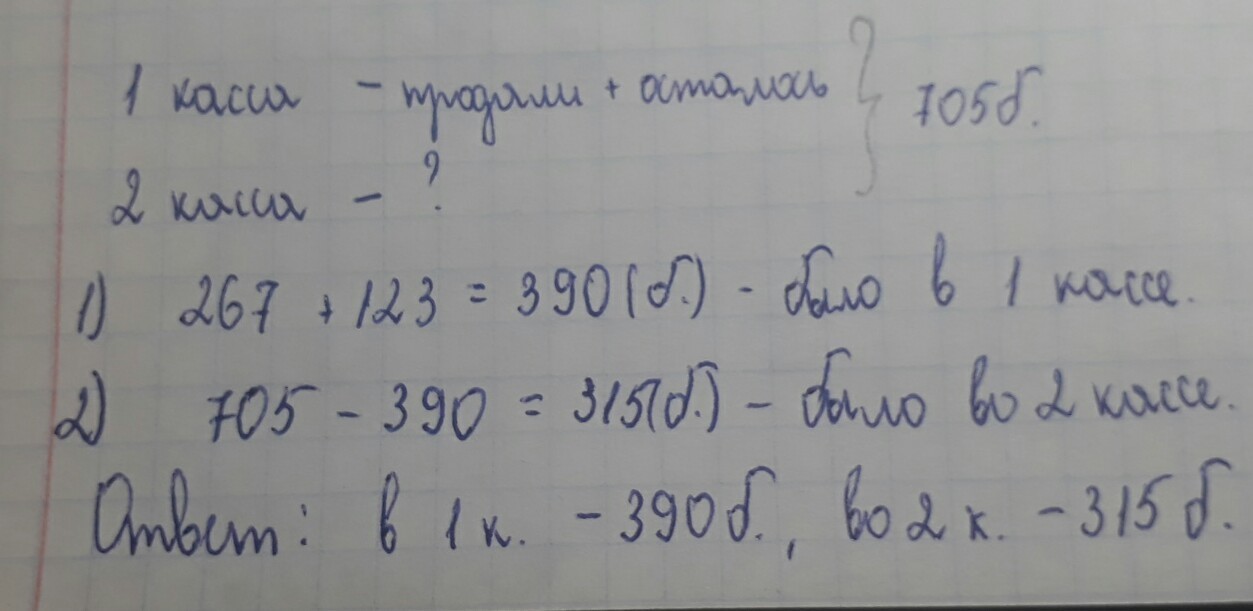 1 касса - продали + осталось } 705б.
2 касса - ?
1) 267 + 123 = 390(б.) - было в 1 кассе.
2) 705 - 390 = 315(б.) - было во 2 кассе.
Ответ: в 1 к. - 390 б., во 2 к. - 315 б.